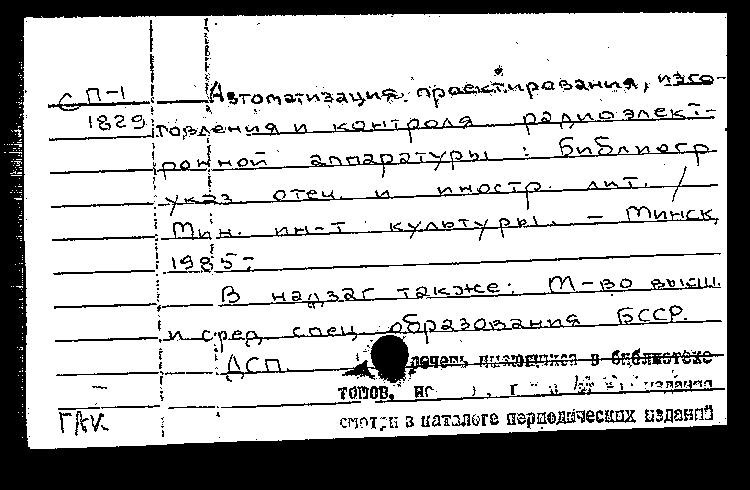 С П-1
1829
Автоматизация проектирования, изго-
товления и контроля радиоэлект-
ронной аппаратуры : Библиогр
указ отеч. и иностр. лит. /
Мин. ин-т культуры. – Минск,
1985-
В надзаг также: М-во высш.
и сред спец образования БССР.
ДСП.
имеющихся в библиотеке
томов, издания
смотри в каталоге периодических изданий
ГАК